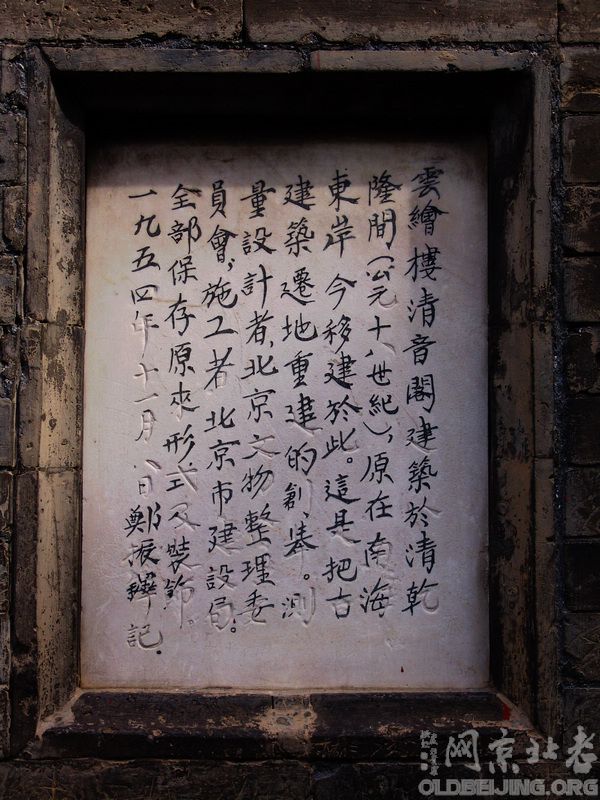 雲繪樓清音閣建築於清乾
隆間（公元十八世紀），原在南海
東岸 今移建於此。這是把古
建築遷地重建的創舉。測
量設計者，北京文物整理委
員會，施工者 北京市建設局。
全部保存原來形式及裝飾。
一九五四年十一月八日鄭振鐸記．
老北京网
OLDBEIJING.ORG